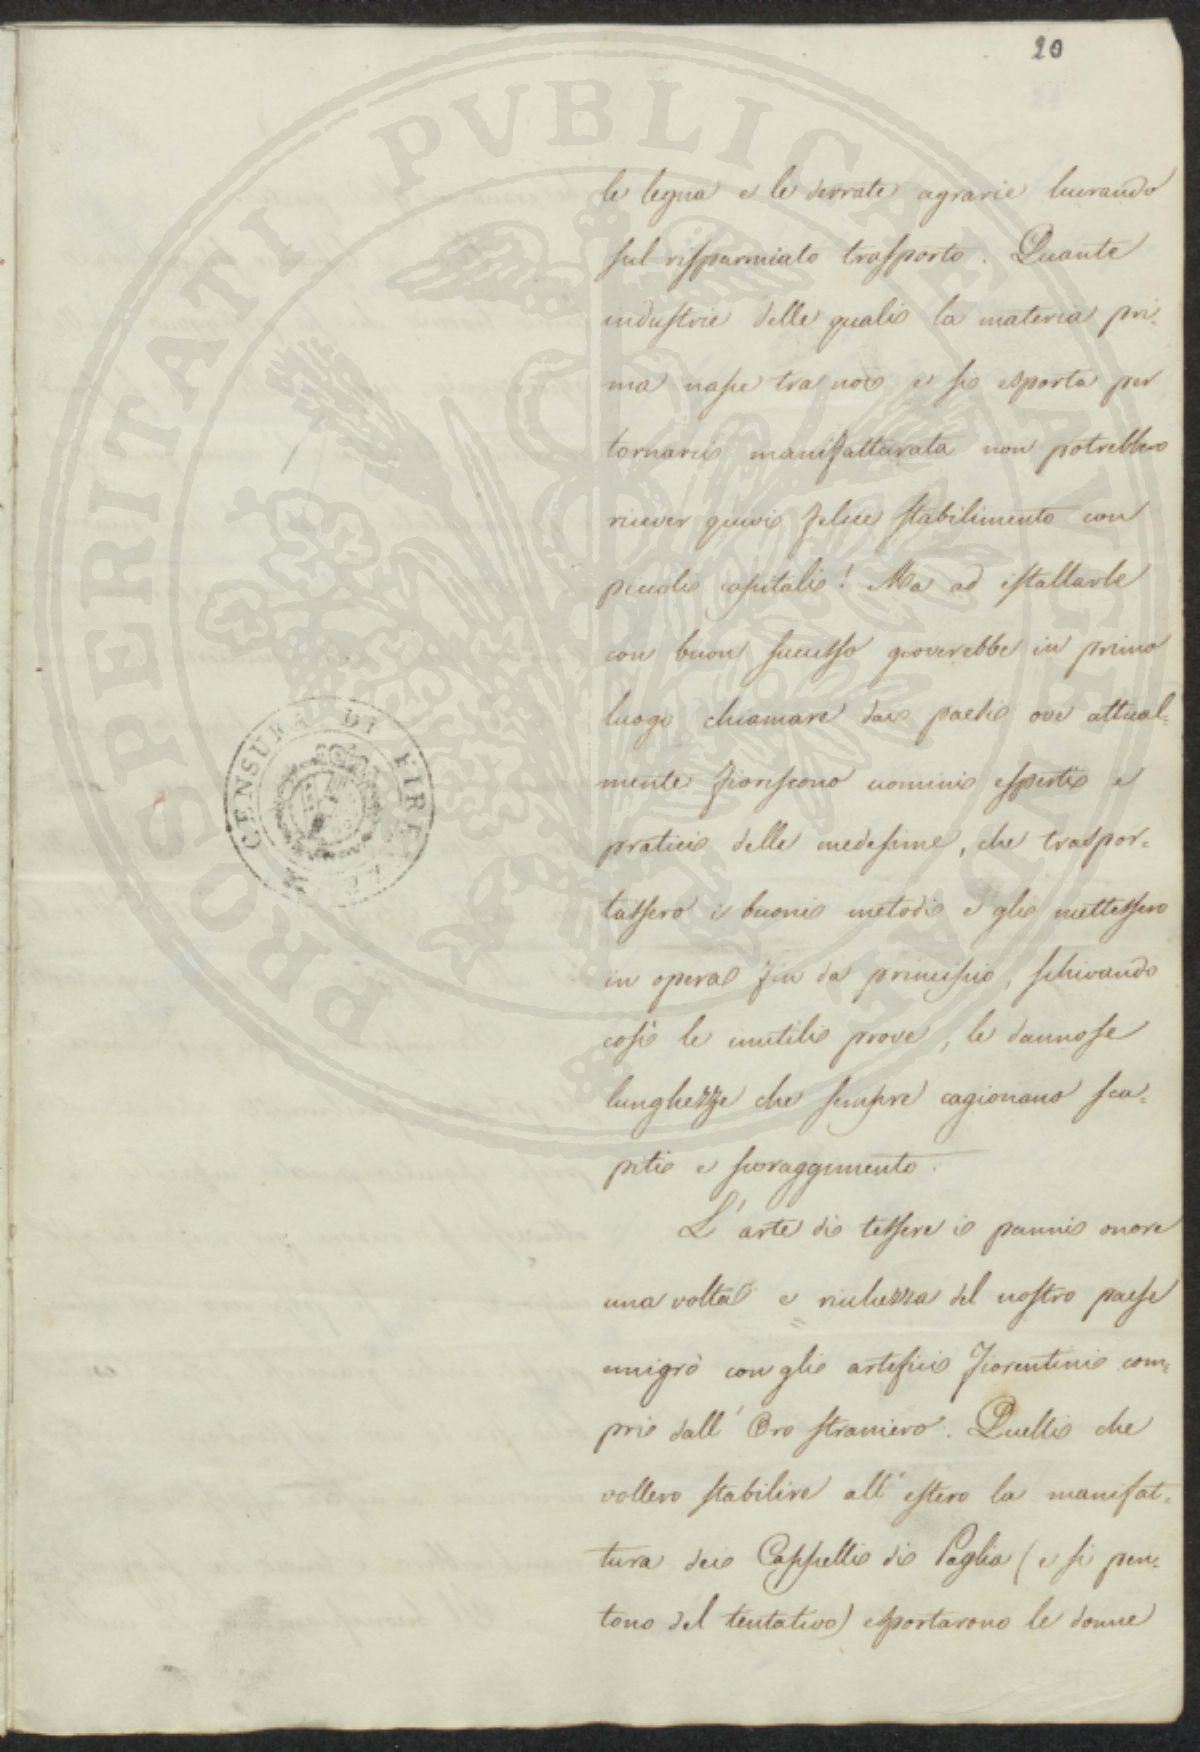 20
le legna e le derrate agrarie lucrando
sul risparmiato trasporto. Quante
industrie delle quali la materia pri-
ma nasce tra noi e si esporta per
tornarci manifatturata non potrebbero
ricever quivi felice stabilimento con
piccoli capitali! Ma ad istallarle
con buon successo gioverebbe in primo
luogo chiamare dai paesi ove attual-
mente fioriscono uomini esperti e
pratici delle medesime, che traspor-
tassero i buoni metodi e gli mettessero
in opera fin da principio, schivando
così le inutili prove, le dannose
lunghezze che sempre cagionano sca-
piti e scoraggimento.
L'arte di tessere i panni onore
una volta e richezza del nostro paese
emigrò con gli artefici fiorentini com-
pri dall'Oro straniero. Quelli che
vollero stabilire all'estero la manifat-
tura dei Cappelli di Paglia (e si pen-
tono del tentativo) esportarono le donne
CENSURA DI FIRENZE
PROSPERITATI PVBLICAE AVGENDAE